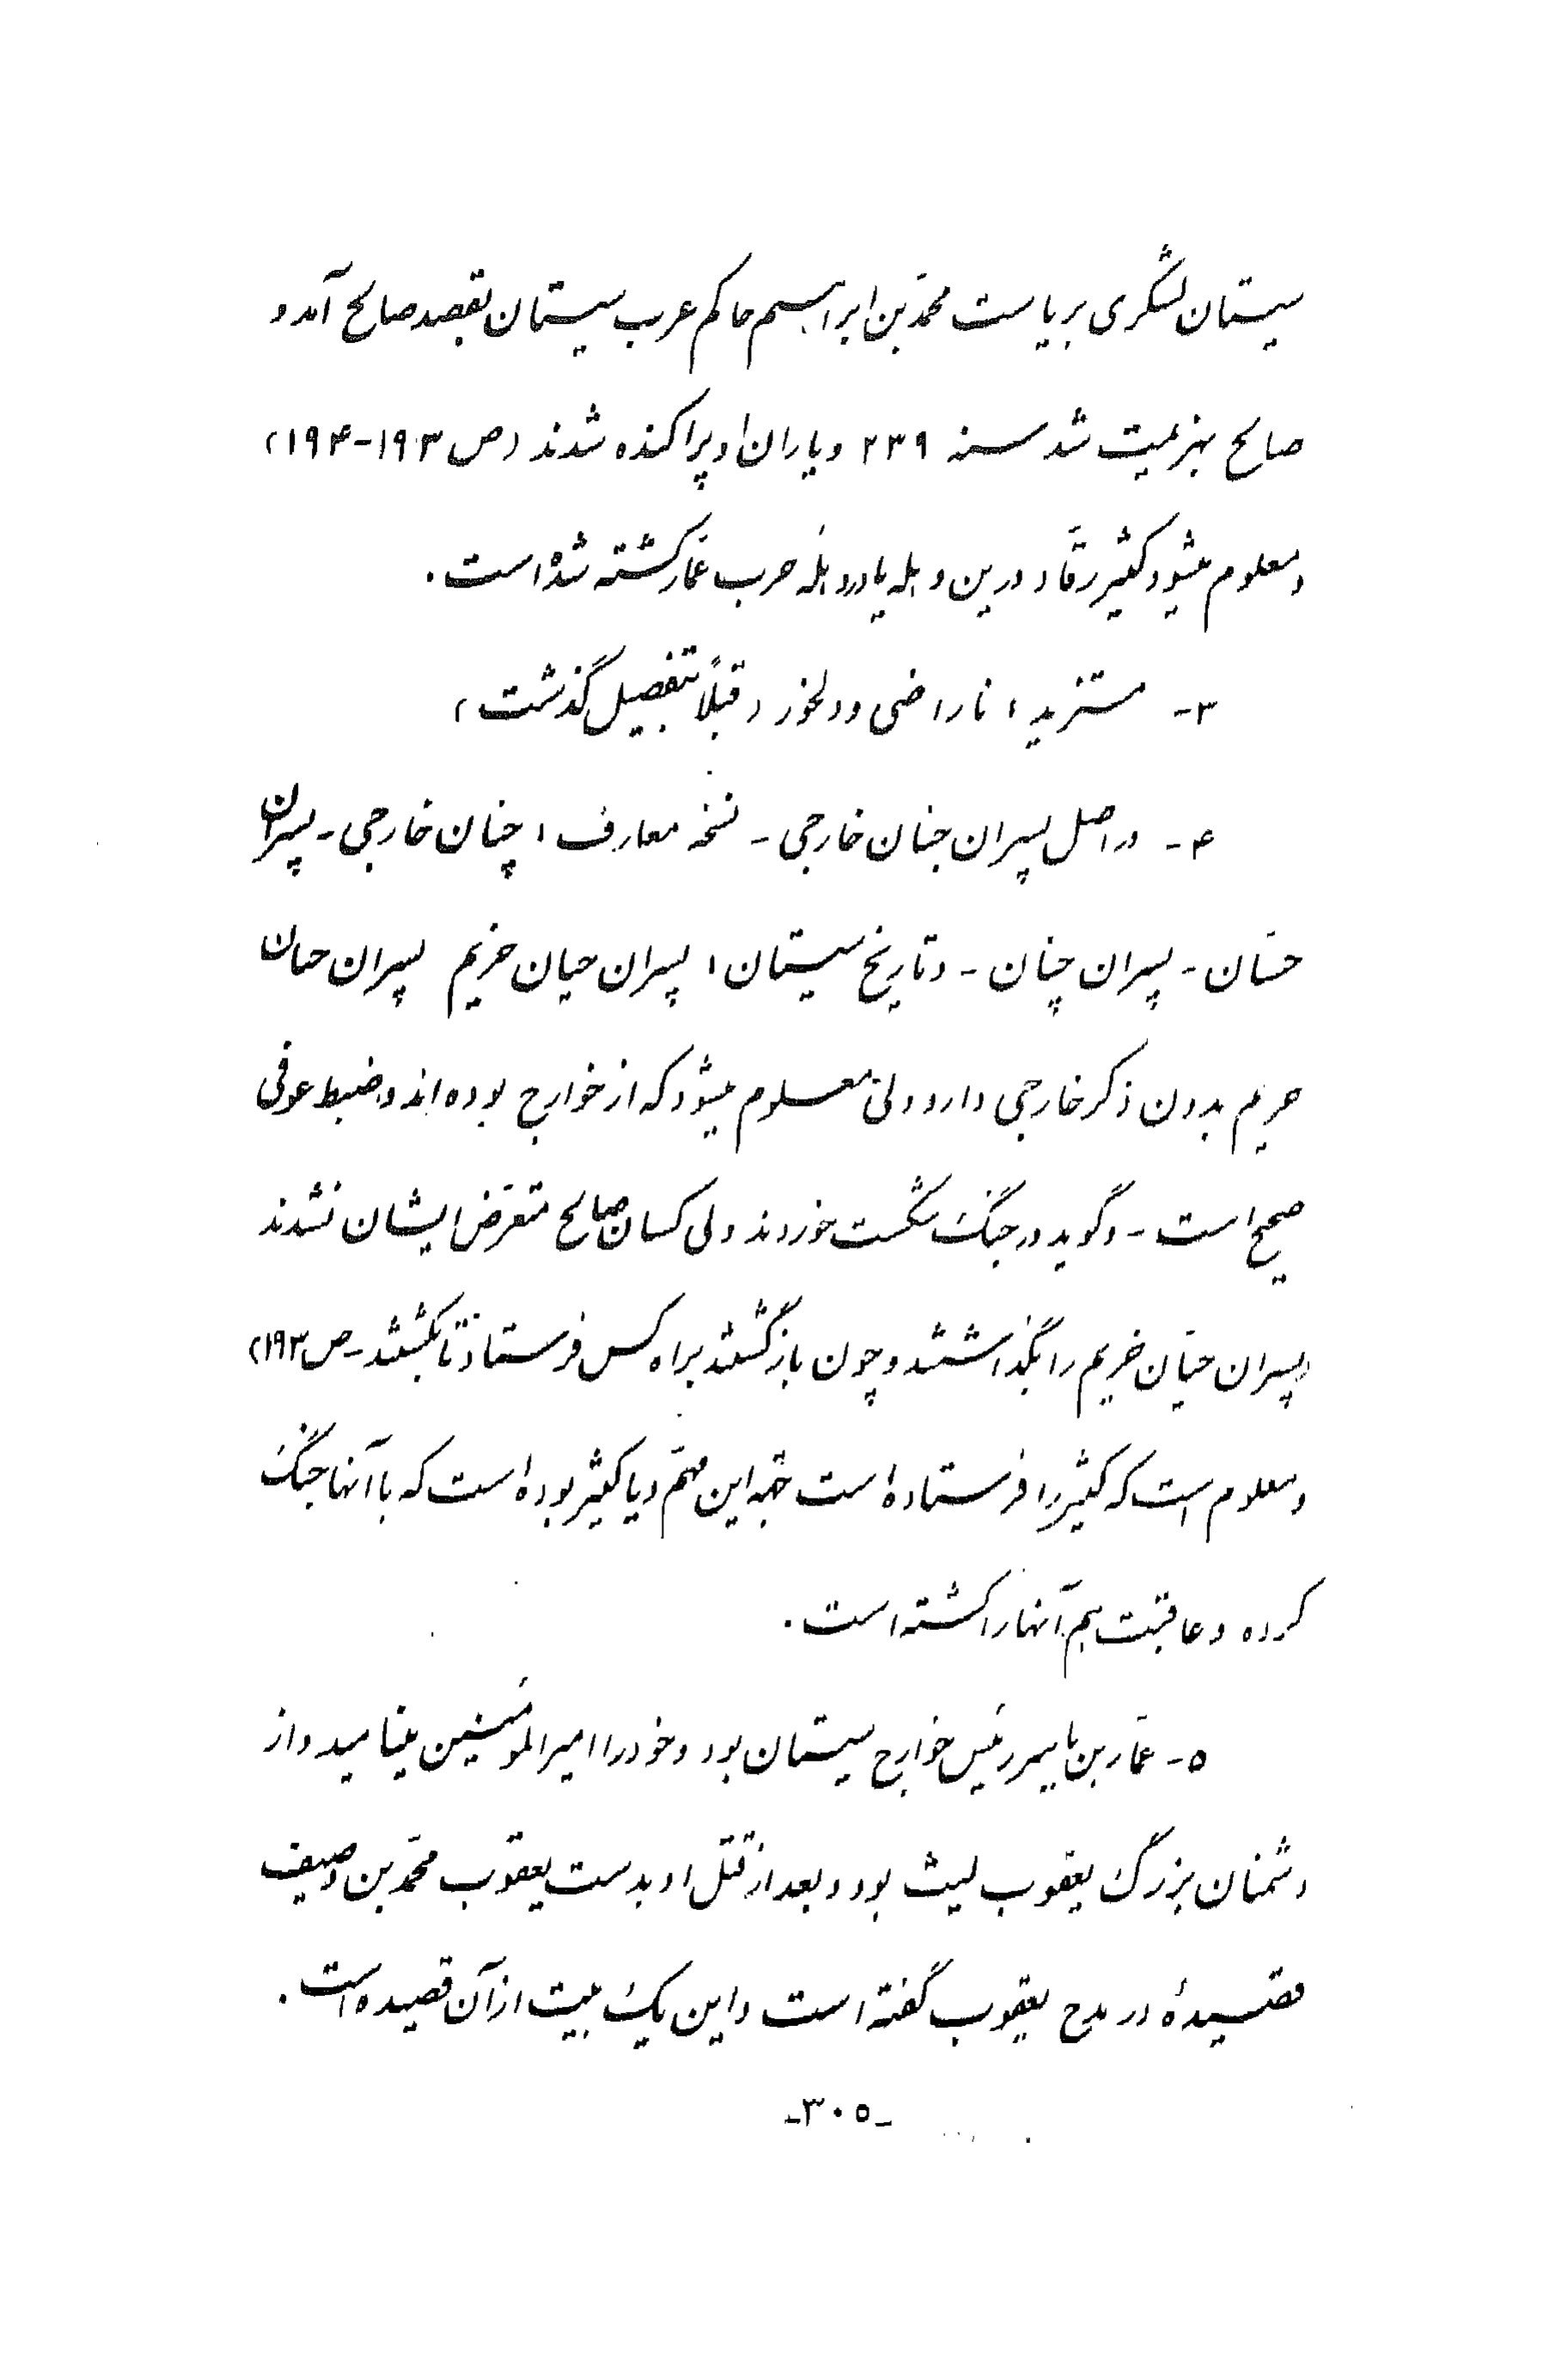 سیستان لشکری بریاست محمّد بن ابراهیم حاکم عرب سیستان بقصد صالح آمد و
صالح بهزیمیت شد سنه ۲۳۹ و یاران او پراکنده شدند (ص ۱۹۳-۱۹۴)
و معلوم میشود کثیر رقّاد درین وهله یا در وهله حرب عمّار کشته شده است.
۳- مستزید: ناراضی و دلخور (قبلاً بتفصیل گذشت)
۴- در اصل پسران جنان خارجی - نسخه معارف: چنان خارجی - پسران
حسّان - پسران چنان - و تاریخ سیستان: پسران حیان خریم پسران حیان
حریم بدون ذکر خارجی دارد ولی معلوم میشود که از خوارج بوده اند و ضبط عوفی
صحیح است - و گوید در جنگ شکست خوردند ولی کسان صالح متعرّض ایشان نشدند
(پسران حیّان خریم را بگذاشتند و چون بازگشتند براه کس فرستاد تا بکشتند - ص ۱۹۳)
و معلوم است که کثیر را فرستاده است بجهة این مهمّ و یا کثیر بوده است که با آنها جنگ
کرده و عاقبت هم آنها را کشته است.
۵- عمّار بن یاسر رئیس خوارج سیستان بود و خود را امیرالمؤمنین مینامید و از
دشمنان بزرگ یعقوب لیث بود و بعد از قتل او بدست یعقوب محمّد بن وصیف
قصیدۀ در مدح یعقوب گفته است و این یک بیت از آن قصیده است.
-۳۰۵-